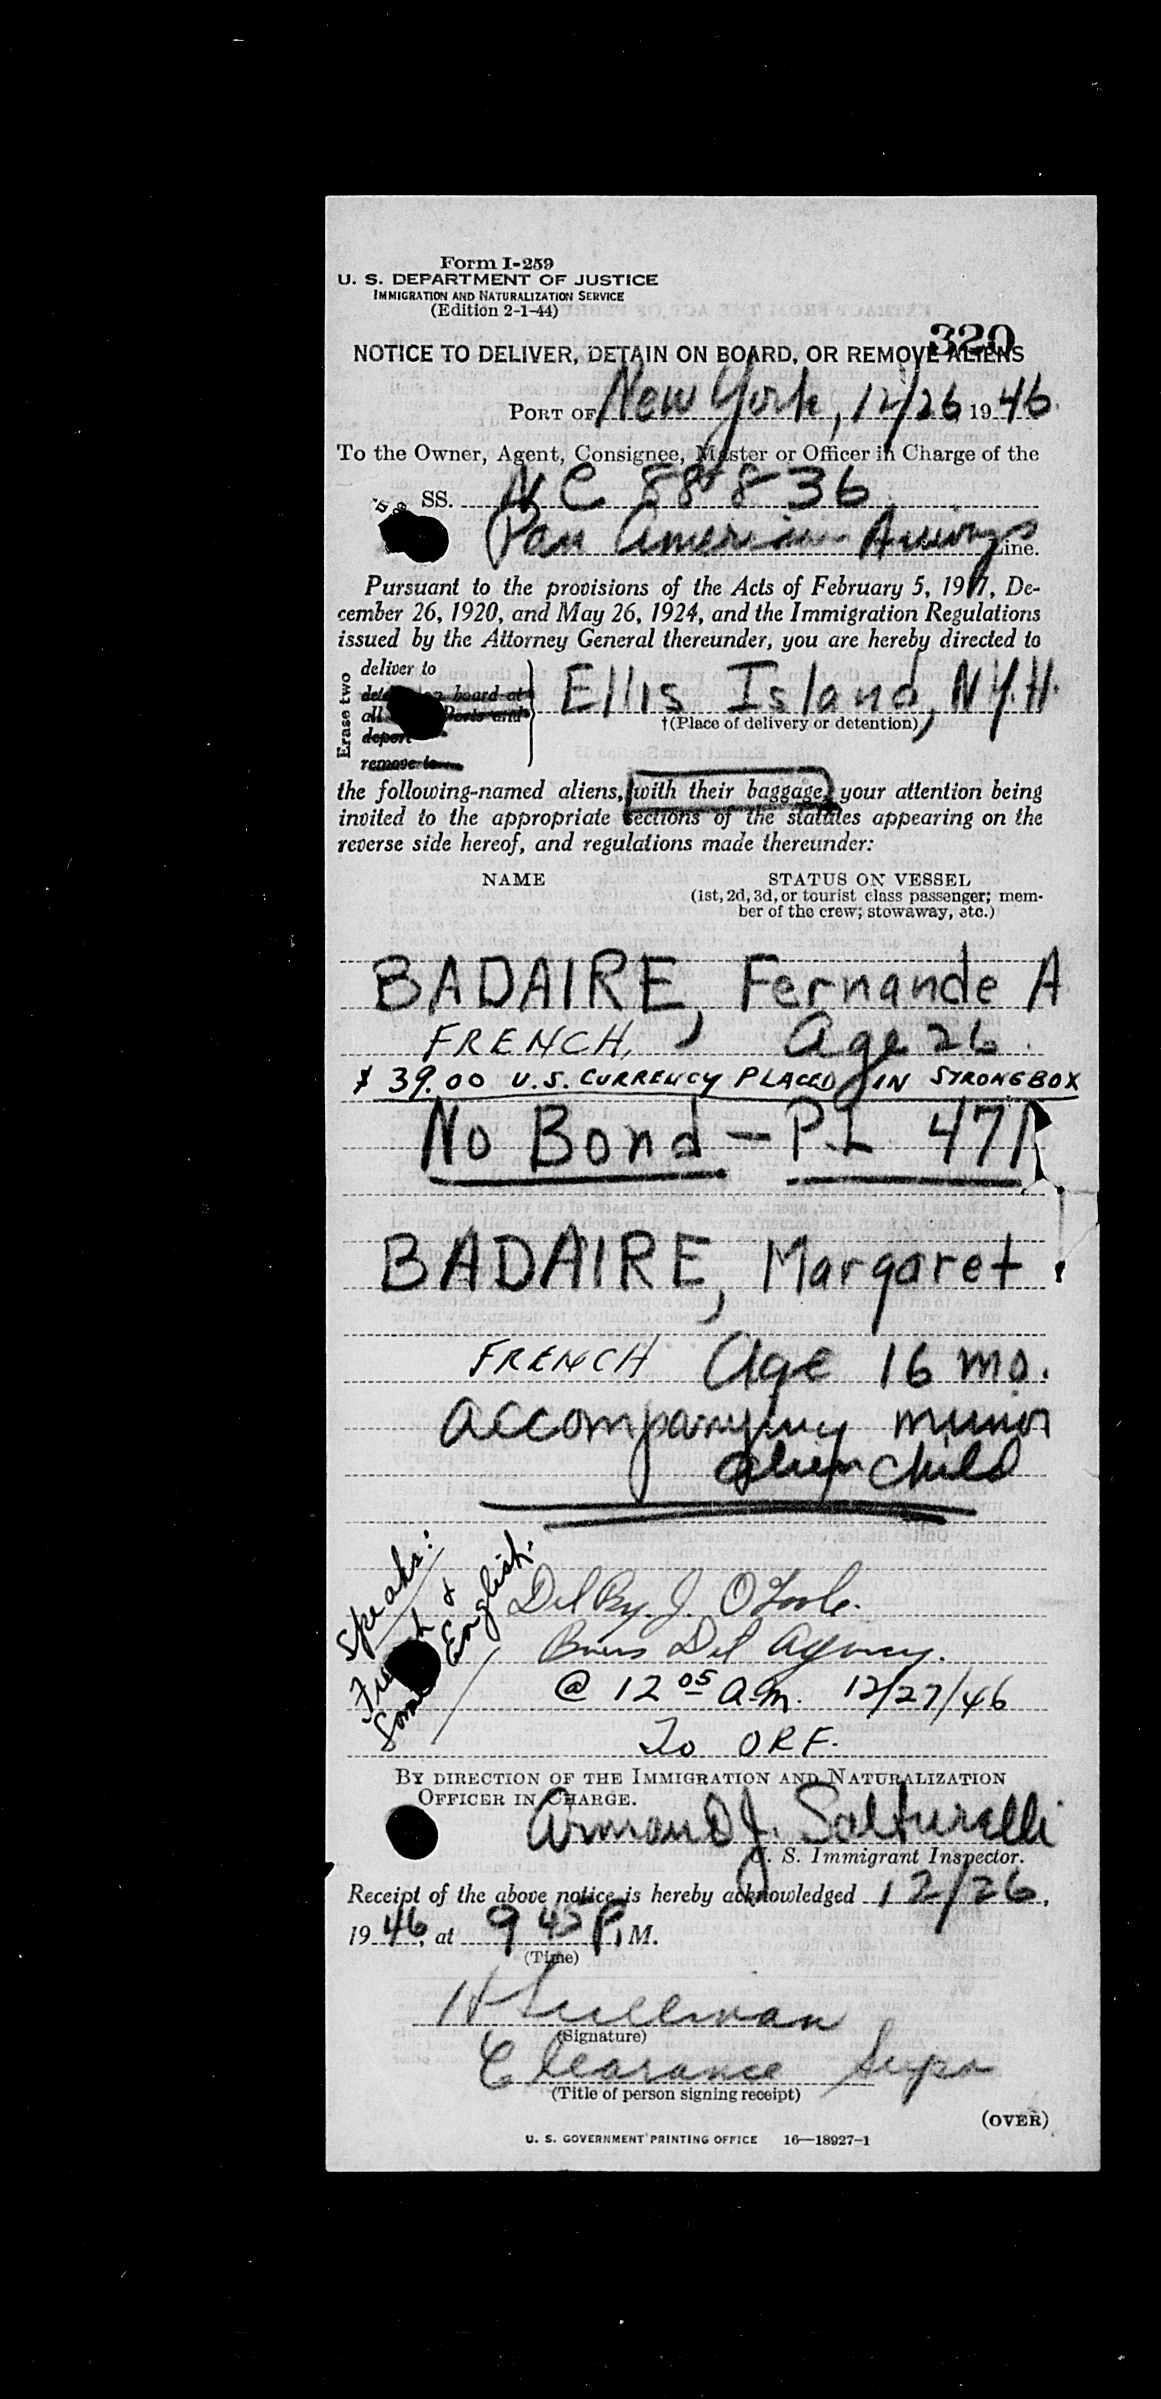 Form I-259
U. S. DEPARTMENT OF JUSTICE
IMMIGRATION AND NATURALIZATION SERVICE
(Edition 2-1-44)
320
NOTICE TO DELIVER, DETAIN ON BOARD, OR REMOVE ALIENS
PORT OF New York, 12/26, 1946.
To the Owner, Agent, Consignee, Master or Officer in Charge of the
SS. NC 88836
Pan American Airways Line.
Pursuant to the provisions of the Acts of February 5, 1917, De-
cember 26, 1920, and May 26, 1924, and the Immigration Regulations
issued by the Attorney General thereunder, you are hereby directed to
Erase two
deliver to
board at
all Ports and
deport
remove to
Ellis Island, N.Y.H.
†(Place of delivery or detention)
the following-named aliens, with their baggage, your attention being
invited to the appropriate sections of the statutes appearing on the
reverse side hereof, and regulations made thereunder:
NAME STATUS ON VESSEL
(1st, 2d, 3d, or tourist class passenger; mem-
ber of the crew; stowaway, etc.)
BADAIRE, Fernande A
FRENCH, Age 26.
$ 39.00 U.S. CURRENCY PLACED IN STRONGBOX
No Bond - P.L 471
BADAIRE, Margaret
FRENCH Age 16 mo.
accompanying minor
alien child
Speaks:
French &
Some English.
Del By. J. O'Toole.
Del Agency.
@ 12 05 a.m. 12/27/46
To ORF.
BY DIRECTION OF THE IMMIGRATION AND NATURALIZATION
OFFICER IN CHARGE.
Armand J. Salturelli
U. S. Immigrant Inspector.
Receipt of the above notice is hereby acknowledged 12/26,
1946, at 9 45 P. M.
(Time)
H Sullivan
(Signature)
Clearance Supv
(Title of person signing receipt)
(OVER)
U. S. GOVERNMENT PRINTING OFFICE 16—18927-1